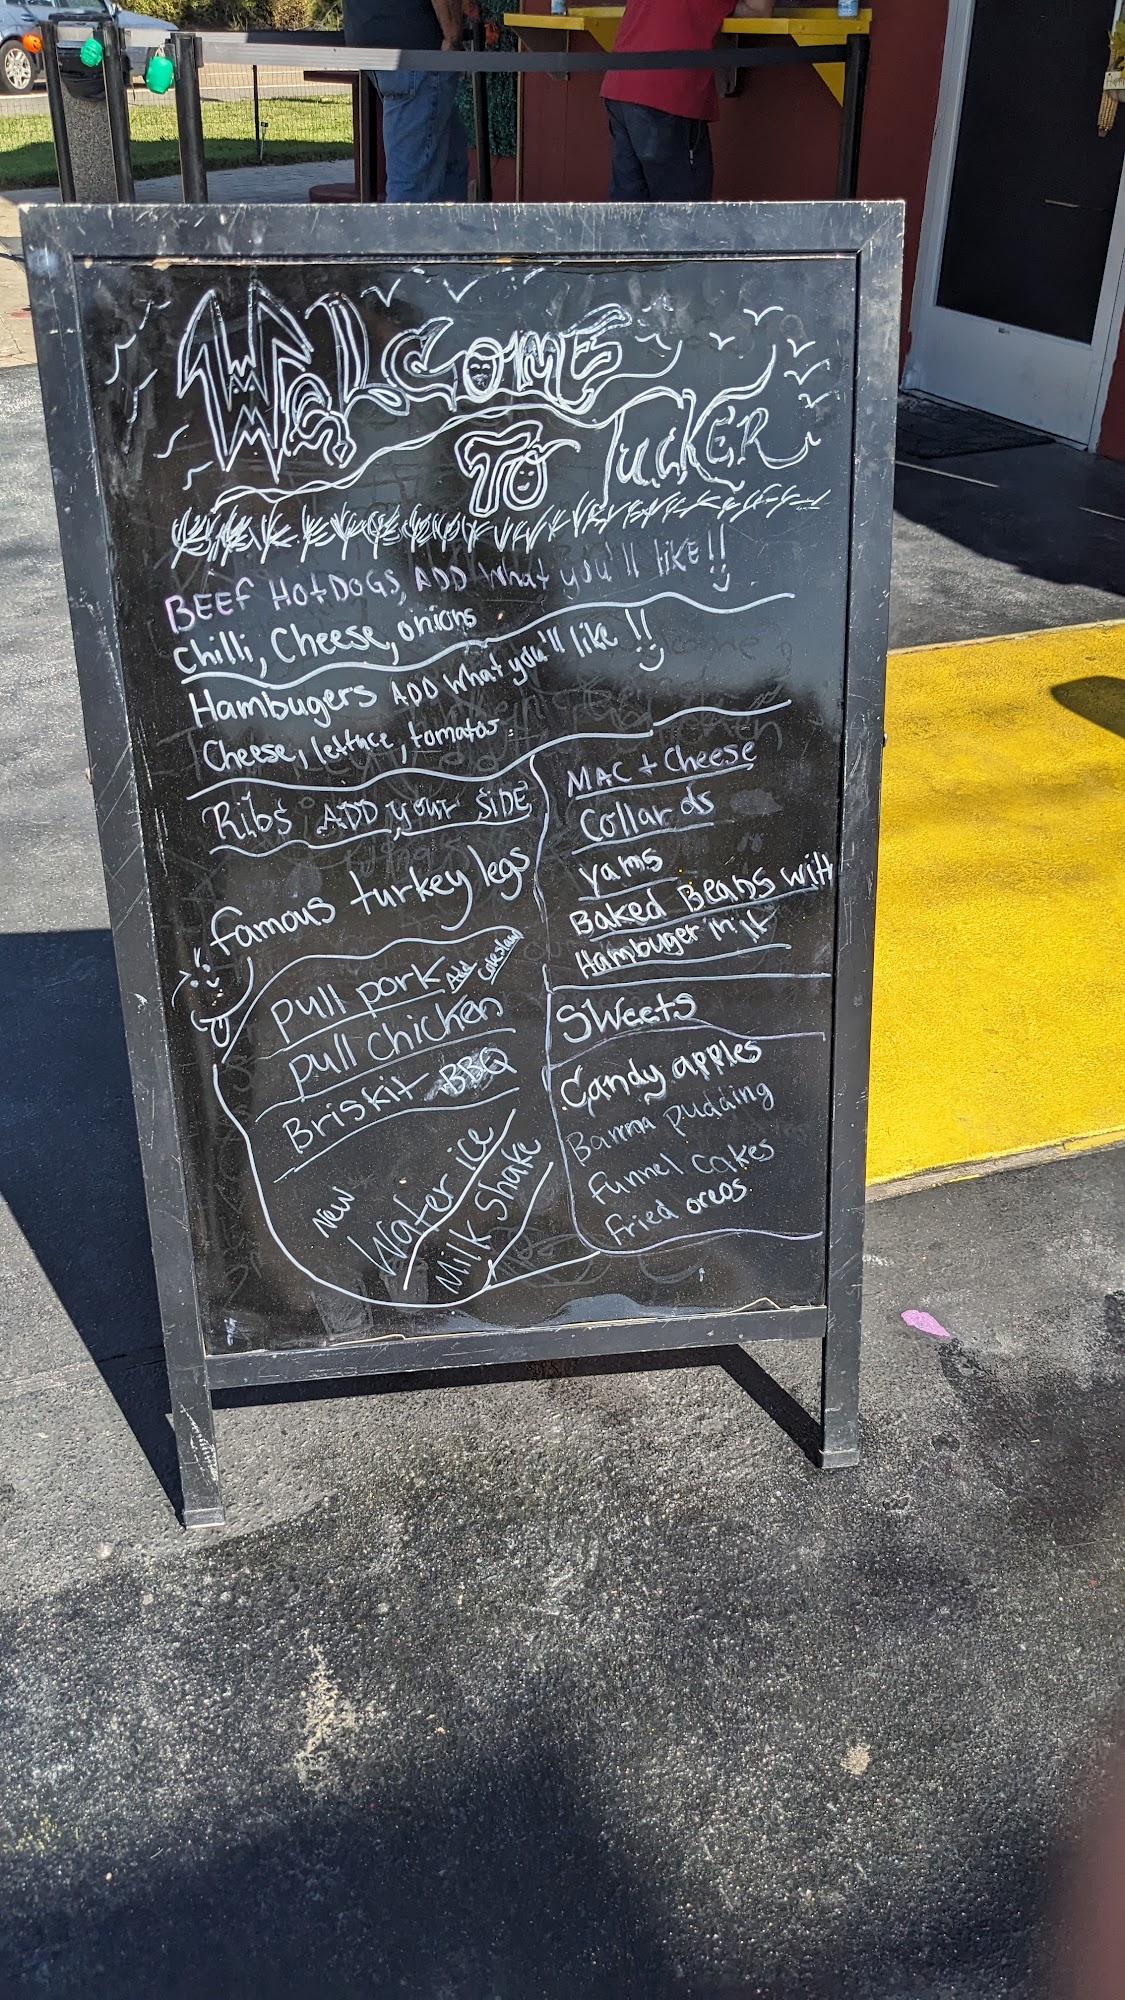 WELCOME
TO TUCKER
BEEf HOtDOGS, ADD what you'll like!!
chilli, Cheese, onions
Hambugers ADD what you'll like !!
Cheese, lettuce, tomatos
Ribs ADD your SIDE
famous turkey legs
pull pork Add Coleslaw
pull chicken
Briskit BBQ
New
Water ice
Milk Shake
MAC + Cheese
Collards
yams
Baked Beans with
Hambuger in it
Sweets
Candy apples
Banna pudding
funnel cakes
fried oreos